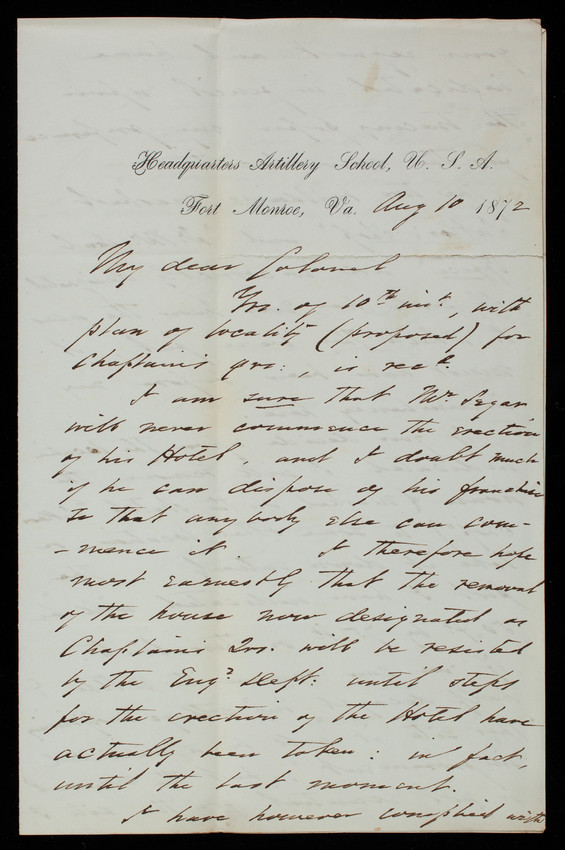 Headquarters Artillery School, U. S. A.
Fort Monroe, Va. Aug 10 1872
My dear Colonel
Yrs. of 10th inst, with
plan of locality (proposed) for
Chaplain's qrs:, is recd.
I am sure that Mr Segar
will never commence the erection
of his Hotel, and I doubt much
if he can dispose of his franchise
so that anybody else can com-
-mence it. I therefore hope
most earnestly that the removal
of the house now designated as
Chaplain's Qrs. will be resisted
by the Engr Dept: until steps
for the erection of the Hotel have
actually been taken: in fact,
until the last moment.
I have however complied with